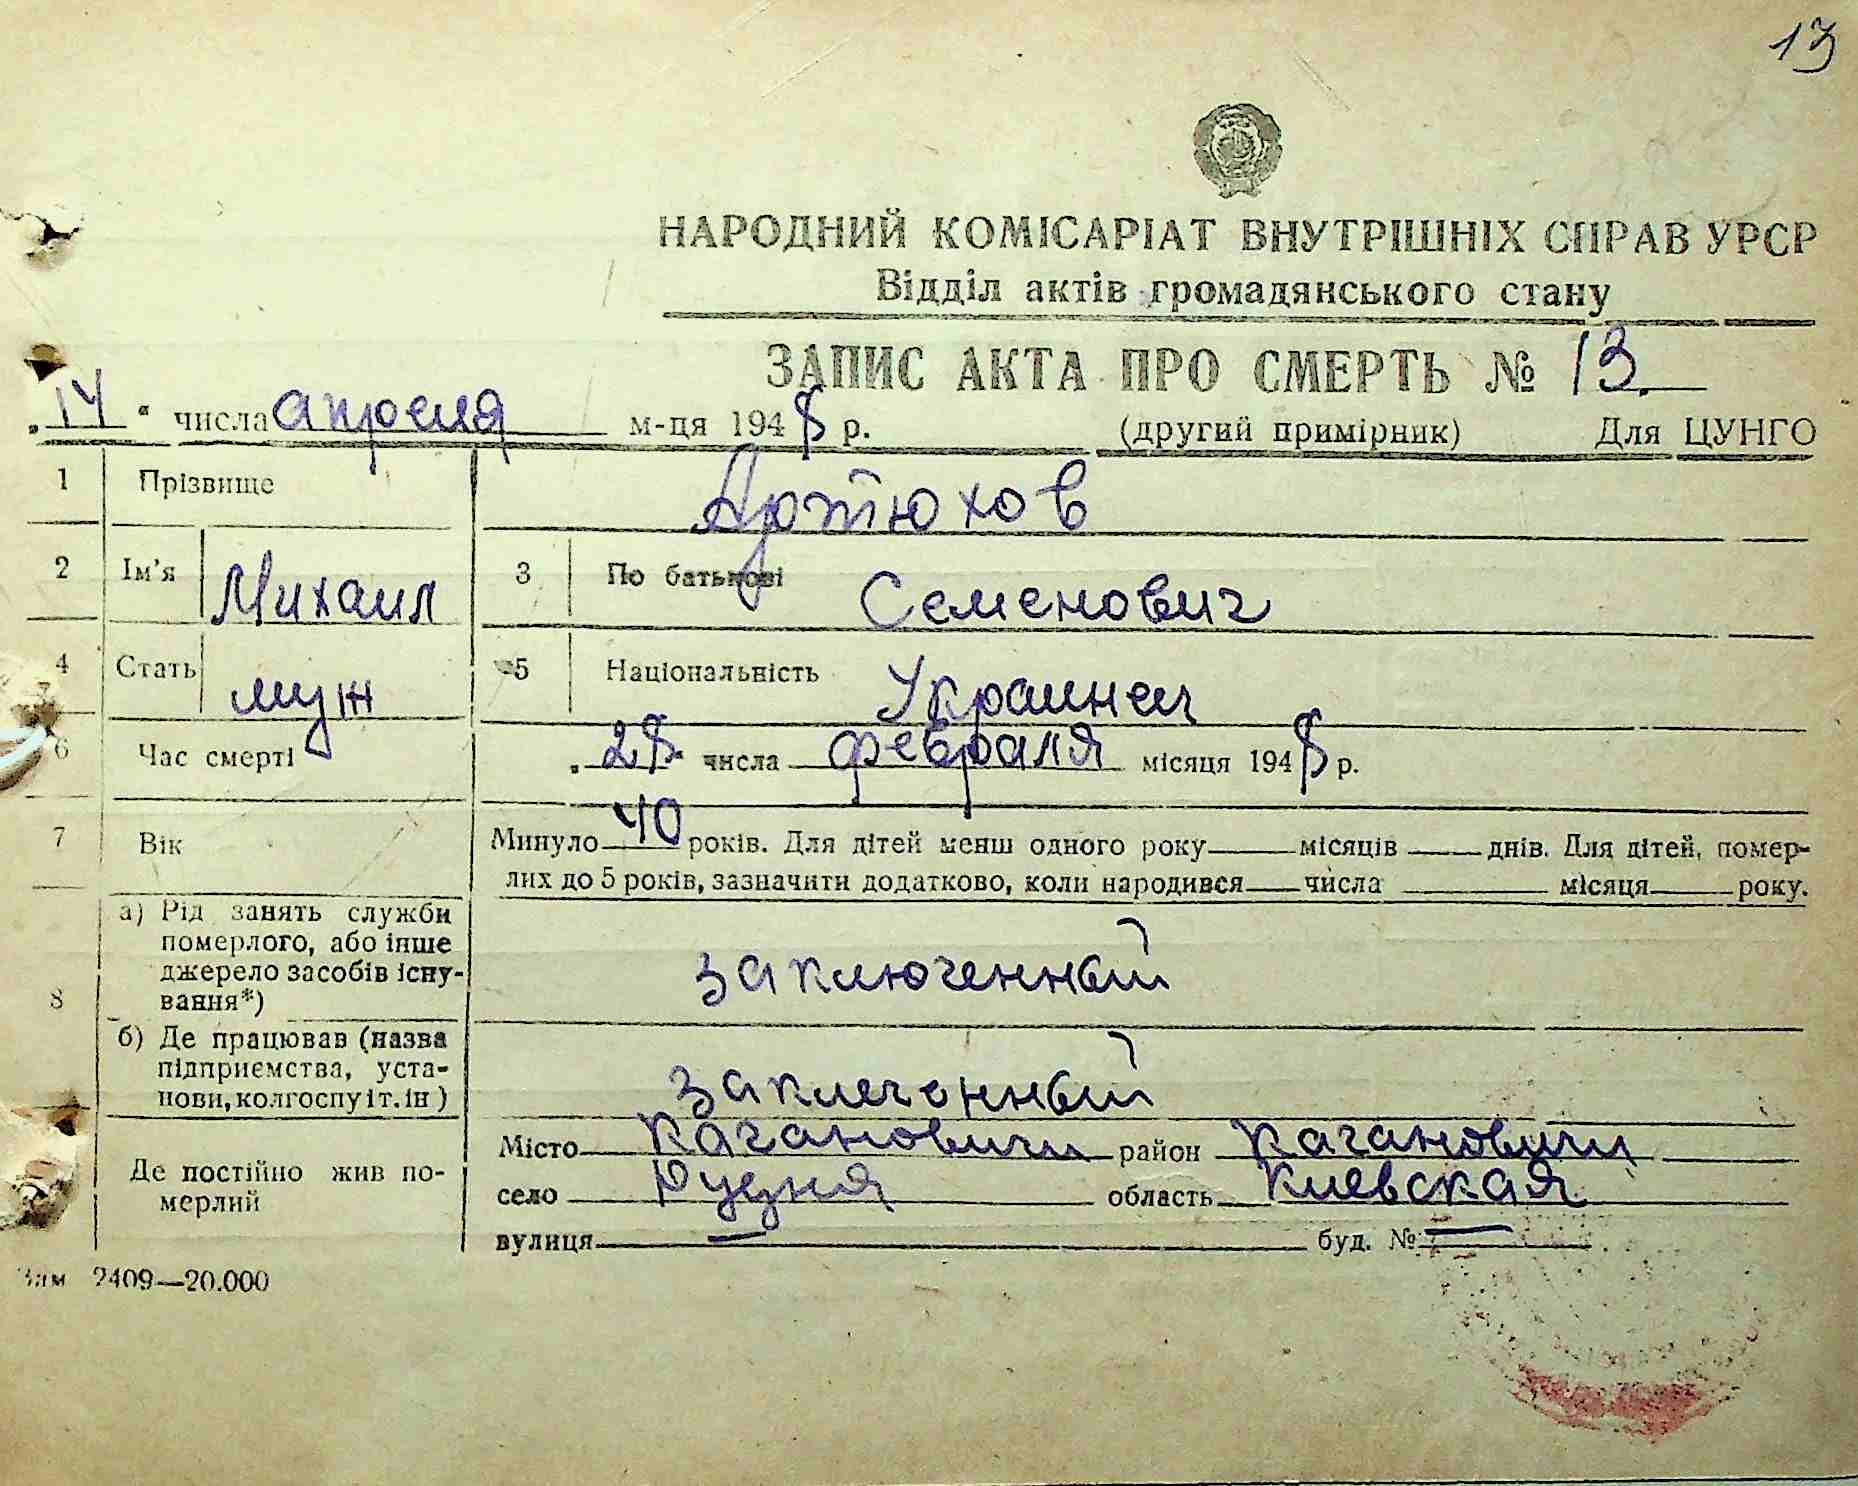 13
НАРОДНИЙ КОМІСАРІАТ ВНУТРІШНІХ СПРАВ УРСР
Відділ актів громадянського стану
ЗАПИС АКТА ПРО СМЕРТЬ № 13.
„14" числа апреля м-ця 1948 р. (другий примірник) Для ЦУНГО
1 Прізвище Артюхов
2 Ім'я Михаил 3 По батькові Семенович
4 Стать муж 5 Національність Украинец
6 Час смерті „28" числа февраля місяця 1948 р.
7 Вік Минуло 40 років. Для дітей менш одного року місяців днів. Для дітей, помер-
лих до 5 років, зазначити додатково, коли народився числа місяця року.
8 а) Рід занять служби
померлого, або інше
джерело засобів існу-
вання*) заключенный
б) Де працював (назва
підприємства, уста-
нови, колгоспу і т. ін) заклечонный
Де постійно жив по-
мерлий
Місто Кагановичи район Кагановичи
село Рудня область Киевская
вулиця — буд. № —
Зам 2409—20.000